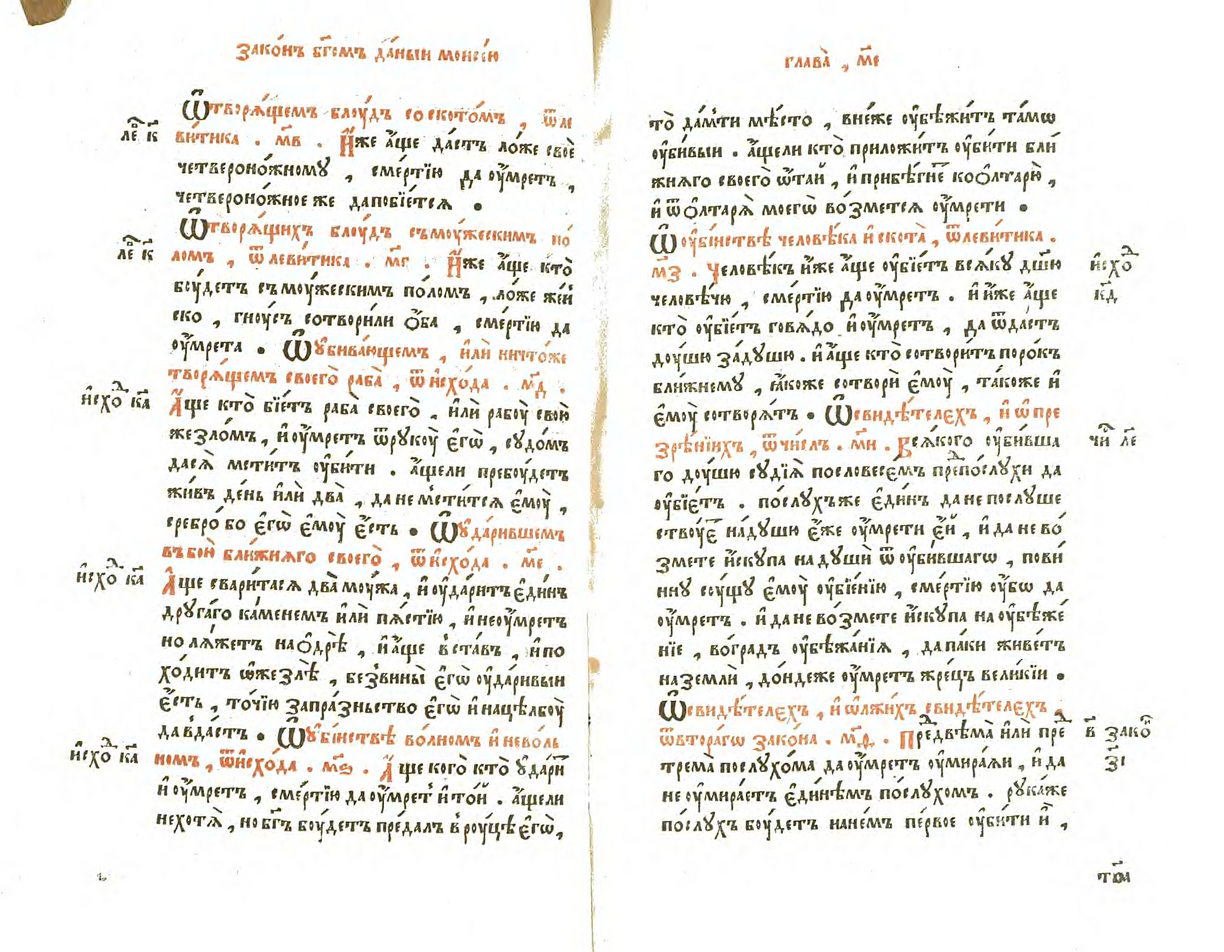 зако́нъ бг҃омъ да́ныи моисе́ю
Ѿтворѧ́щемъ блоу́дъ соското́мъ , ѿле
ле҃ к҃
ви́тика . м҃в . И҆́же а҆́ще да́стъ ло́же своѐ
четвероно́жному , сме́ртїю да оу҆́мретъ ,
четвероно́жное же дапобїе́тсѧ .
Ѿтворѧ́щихъ блоу́дъ съмоу́жескимъ по́
ле҃ к҃
ломъ , ѿлеви́тика . м҃г . И҆́же а҆́ще кто̀
боу́детъ съмоу́жескимъ по́ломъ , ло́же же́н
ско , гноу́съ сотвори́ли о҆́ба , сме́ртїю да
оу҆́мрета . Ѡ҆убива́ющемъ , и҆лѝ ничто́же
творѧ́щемъ своего̀ раба̀ , ѿи҆схо́да . м҃д .
и҆схо́д ка
А҆́ще кто̀ бїе́тъ раба̀ своего̀ , и҆лѝ рабоу̀ свою̀
жезло́мъ , и҆оу҆́мретъ ѿрукоу̀ є҆гѡ̀ , судо́мъ
дасѧ̀ мсти́тъ оу҆би́ти . а҆́щели пребоу́детъ
жи́въ де́нь и҆лѝ два̀ , да не мсти́тсѧ є҆моу̀ ,
сребро́ бо є҆гѡ̀ є҆моу̀ є҆́сть . Ѡ҆уда́рившемъ
въбоѝ бли́жнѧго своего̀ , ѿи҆схо́да . м҃е .
и҆схо́д ка
А҆́ще сварита́сѧ два̀ моу́жа , и҆оу҆да́ритъ є҆ди́нъ
друга́го ка́менемъ и҆лѝ пѧ́стїю , и҆неоу҆́мретъ
но лѧ́жетъ на о҆дрѣ̀ , и҆а҆́ще вста́въ , и҆по
хо́дитъ ѡ҆жезлѣ̀ , безвины̀ є҆гѡ̀ оу҆да́ривыи
є҆́сть , то́чїю запра́зньство є҆гѡ̀ и҆нацѣлбоу̀
дав̾да́стъ . Ѡ҆уби́иствѣ во́лномъ и҆нево́ль
и҆схо́д ка
номъ , ѿи҆схо́да . м҃ѕ . А҆́ще кого кто̀ ѹ҆да́ри
и҆ оу҆́мретъ , сме́ртїю да оу҆́мрет и҆ то́и . а҆́щели
нехотѧ̀ , но бг҃ъ боу́детъ пре́далъ в̾роу́цѣ є҆гѡ̀ ,
глава̀ , м҃е
то̀ да́мти мѣ́сто , внеже оу҆бѣжи́тъ та́мѡ
оу҆би́выи . а҆́щели кто̀ приложи́тъ оу҆би́ти бли́
жнѧго своего̀ ѿта́и , и҆ прибѣ́гне коѻлтарю̀ ,
и҆ ѿѻлтарѧ̀ моегѡ̀ во́зметсѧ оу҆мре́ти .
Ѡ҆оуби́иствѣ человѣ́ка и҆ скота̀ , ѿлеви́тика .
м҃з . Человѣ́къ и҆́же а҆́ще оу҆бїе́тъ всѧ́ку дш҃ю
и҆схо́д
человѣ́чю , сме́ртїю да оу҆́мретъ . и҆ и҆́же а҆́ще
к҃д
кто̀ оу҆бїе́тъ говѧ́до и҆оу҆́мретъ , да ѿда́стъ
доу́шю за́душю . и҆ а҆́ще кто̀ сотвори́тъ поро́къ
бли́жнему , ꙗ҆́коже сотворѝ є҆моу̀ , та́коже и҆
є҆моу̀ сотворѧ́тъ . Ѡ҆свидѣ́телехъ , и҆ ѡ҆пре
зрѣ́нїихъ , ѿчи́слъ . м҃и . Всѧ́кого оу҆би́вша
чи́ ле
го доу́шю судїѧ̀ пословесе́мъ препо́слухи да
оу҆бїе́тъ . по́слухъже є҆ди́нъ да не послуше
ствуе на́душю є҆́же оу҆мре́ти є҆́и , и҆ да не во́
змете и҆́скупа на душѝ ѿ оу҆би́вшагѡ , пови́
нну соу́щу є҆моу̀ оу҆бїе́нїю , сме́ртїю оу҆́бѡ да
оу҆́мретъ . и҆ да не во́змете и҆́скупа на оу҆бѣже́
нїе , во́градъ оу҆бѣжа́нїѧ , да па́ки живе́тъ
на землѝ , до́ндеже оу҆́мретъ жре́цъ вели́кїи .
Ѡ҆свидѣ́телехъ , и҆ ѡ҆лжи́хъ свидѣ́телехъ ,
ѿвтора́гѡ зако́на . м҃ѳ . Предвѣма̀ и҆лѝ пре
в҃ зако
трема̀ послухо́ма да оу҆́мретъ оу҆мира́ѧи , и҆ да
з҃і
не оу҆мира́етъ є҆ди́нѣмъ по́слухомъ . рука́же
по́слухъ боу́детъ нане́мъ пе́рвое оу҆би́ти и҆̀ ,